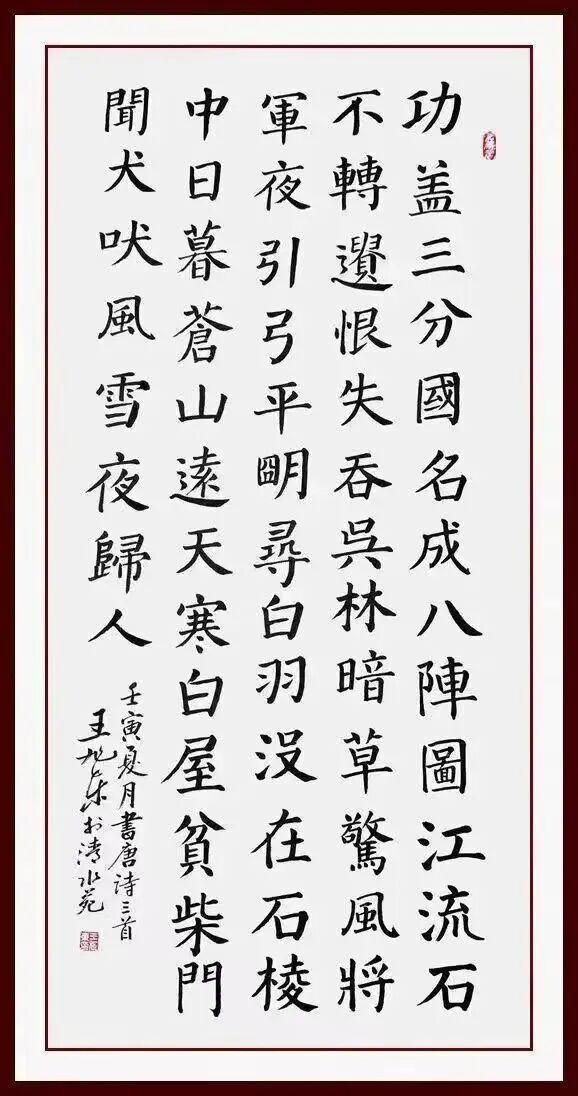 功盖三分國名成八陣圖江流石
不轉遺恨失吞吳林暗草驚風將
軍夜引弓平明尋白羽沒在石棱
中日暮蒼山遠天寒白屋貧柴門
聞犬吠風雪夜歸人
壬寅夏月書唐詩三首
王旭東於清水苑